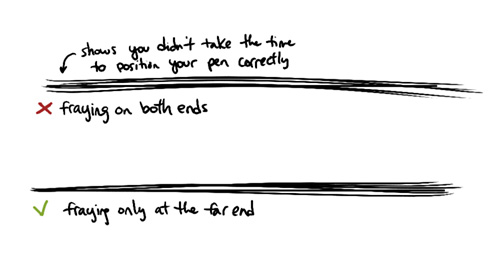 shows you didn't take the time
to position your pen correctly
fraying on both ends
fraying only at the far end